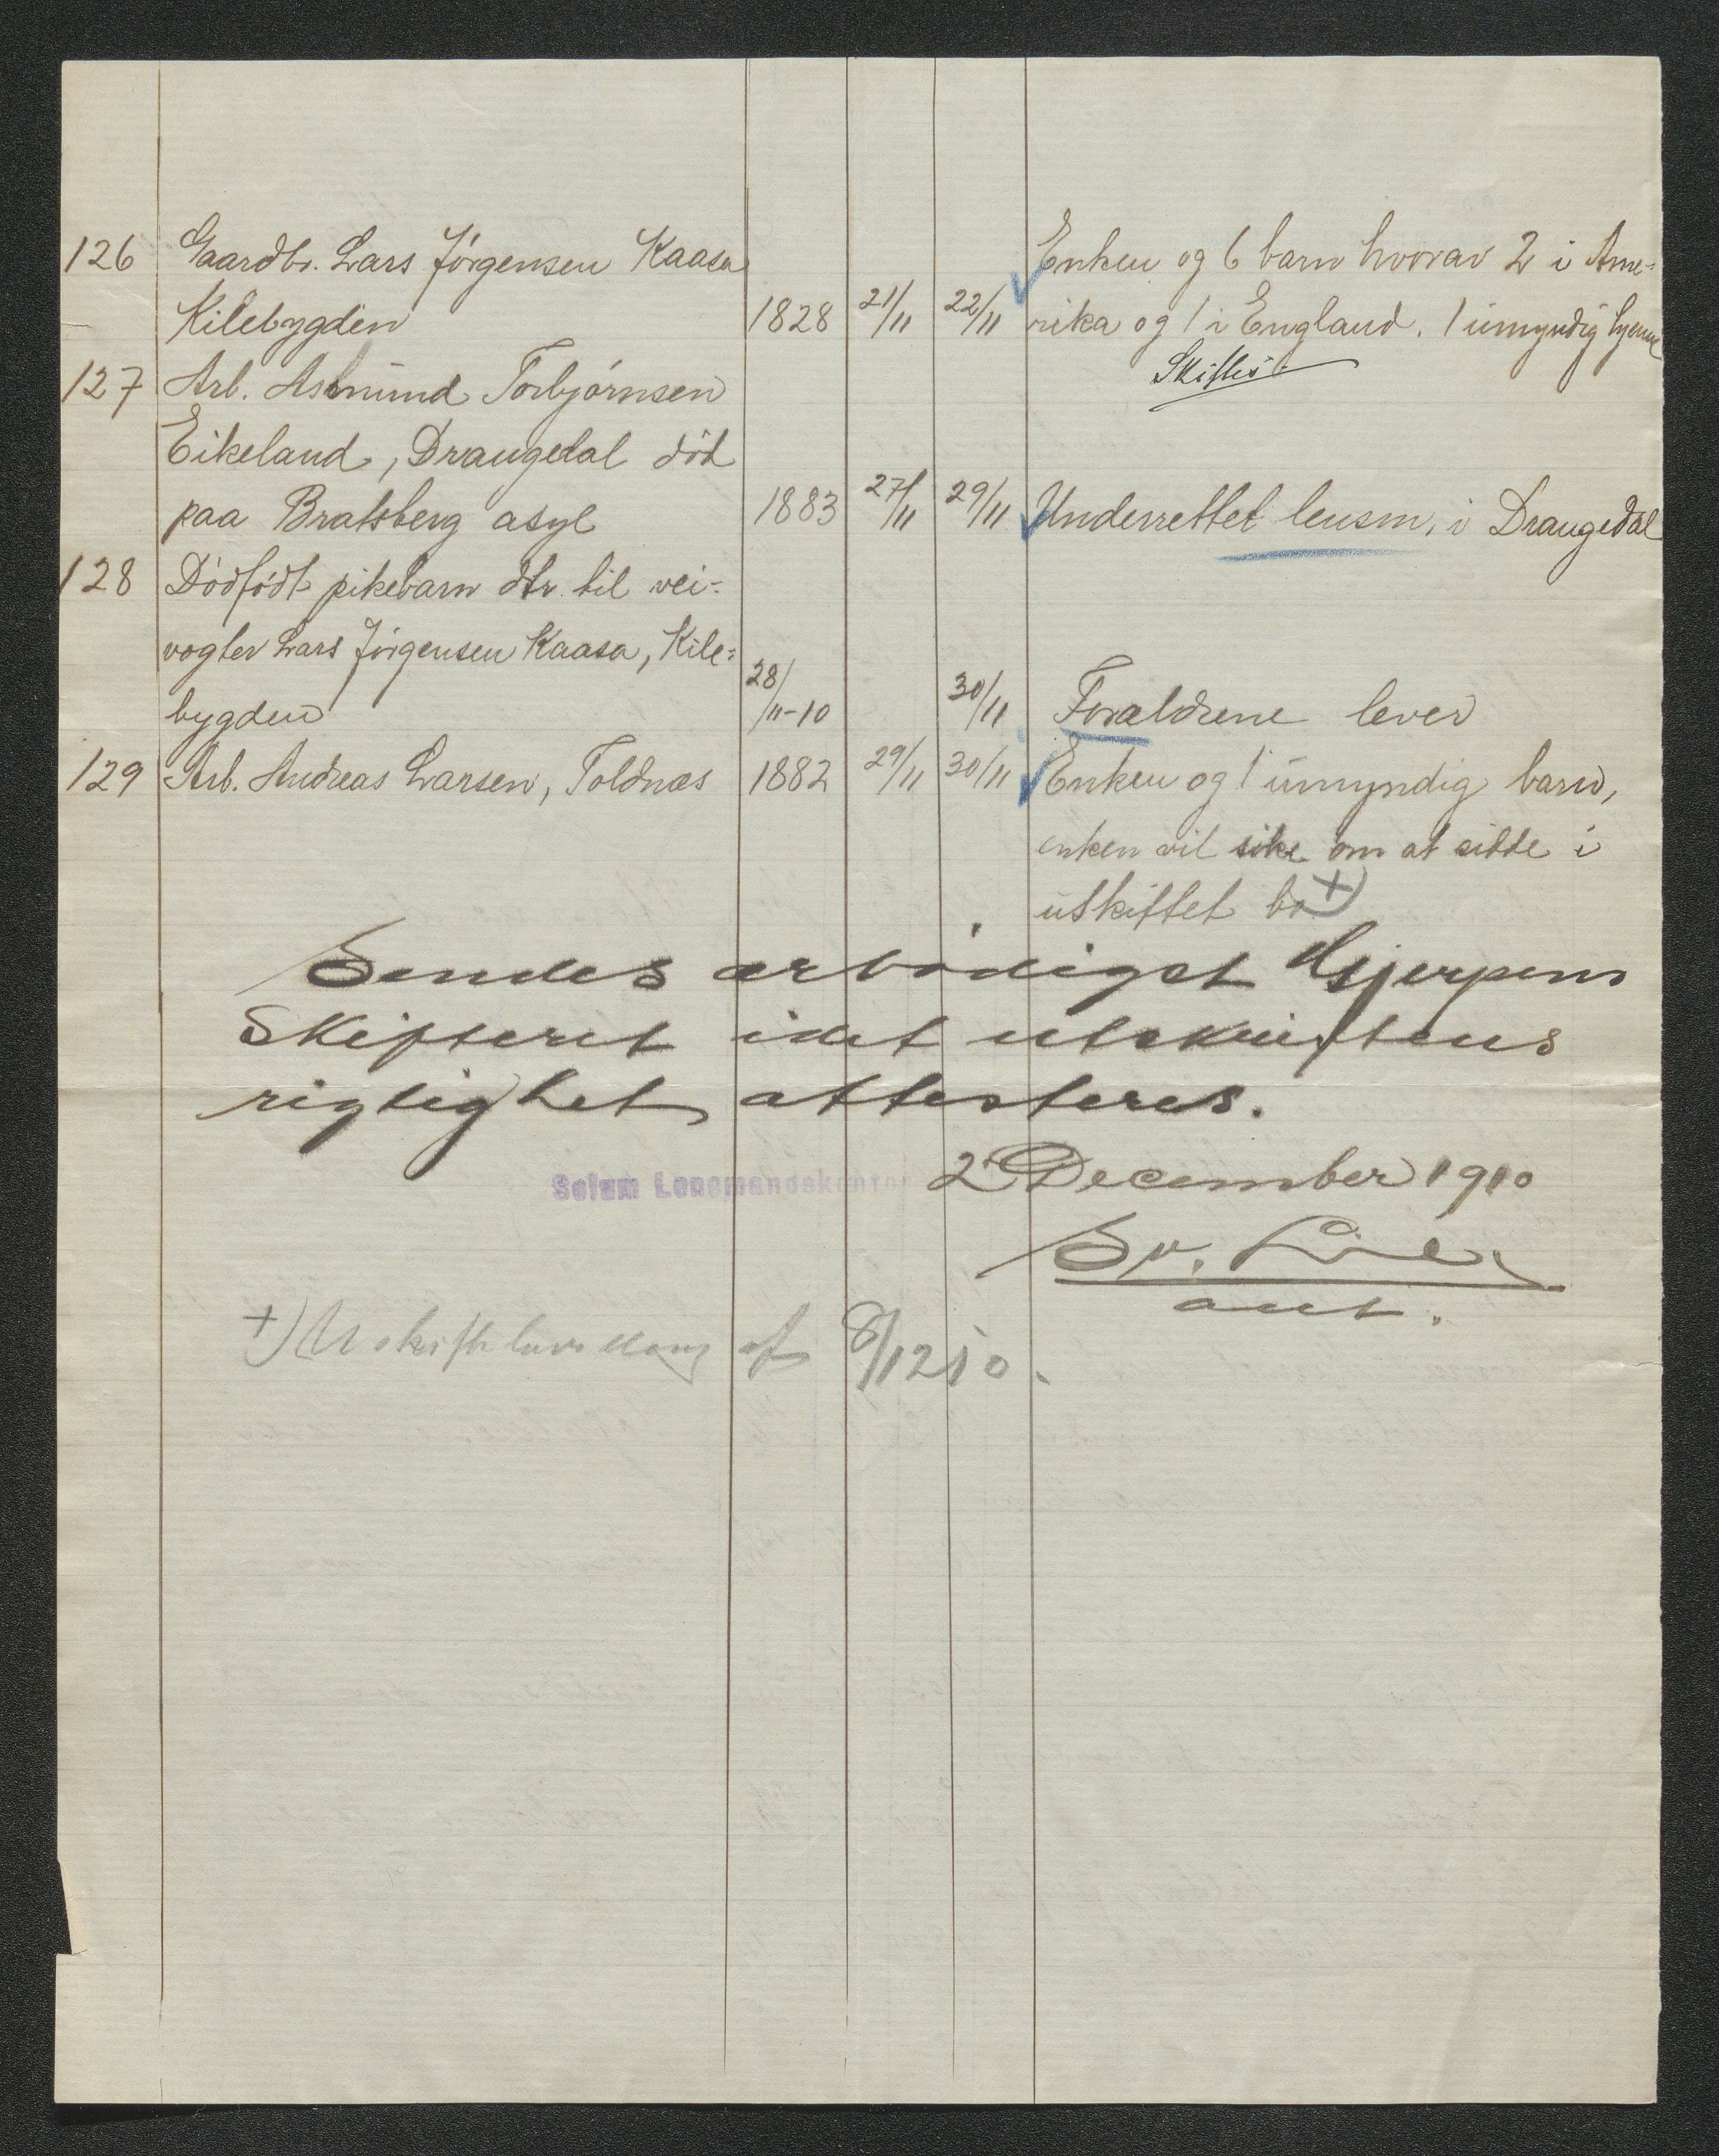 126 Gaardbr. Lars Jörgensen Kaasa Enken og 6 barn hvorav 2 i Ame-
Kilebygden 1828 21/11 22/11 rika og 1 i England. 1 umyndig hjemme
Skiftes
127 Arb. Asmund Torbjörnsen
Eikeland, Drangedal död
paa Bratsberg asyl 1883 27/11 29/11 Underrettet lensm. i Drangedal
128 Dödfödt pikebarn dtr. til vei-
vogter Lars Jörgensen Kaasa, Kile-
bygden 28/11-10 30/11 Forældrene lever
129 Arb. Andreas Larsen, Toldnæs 1882 29/11 30/11 Enken og 1 umyndig barn,
enken vil söke om at sidde i
uskiftet bo +)
Sendes ærbödigst Gjerpens
Skifteret idet utskriftens
rigtighet attesteres.
Solum Lensmandskontor 2 December 1910
Sv. Lie
aut.
+) Uskiftebevilling af 8/12 10.